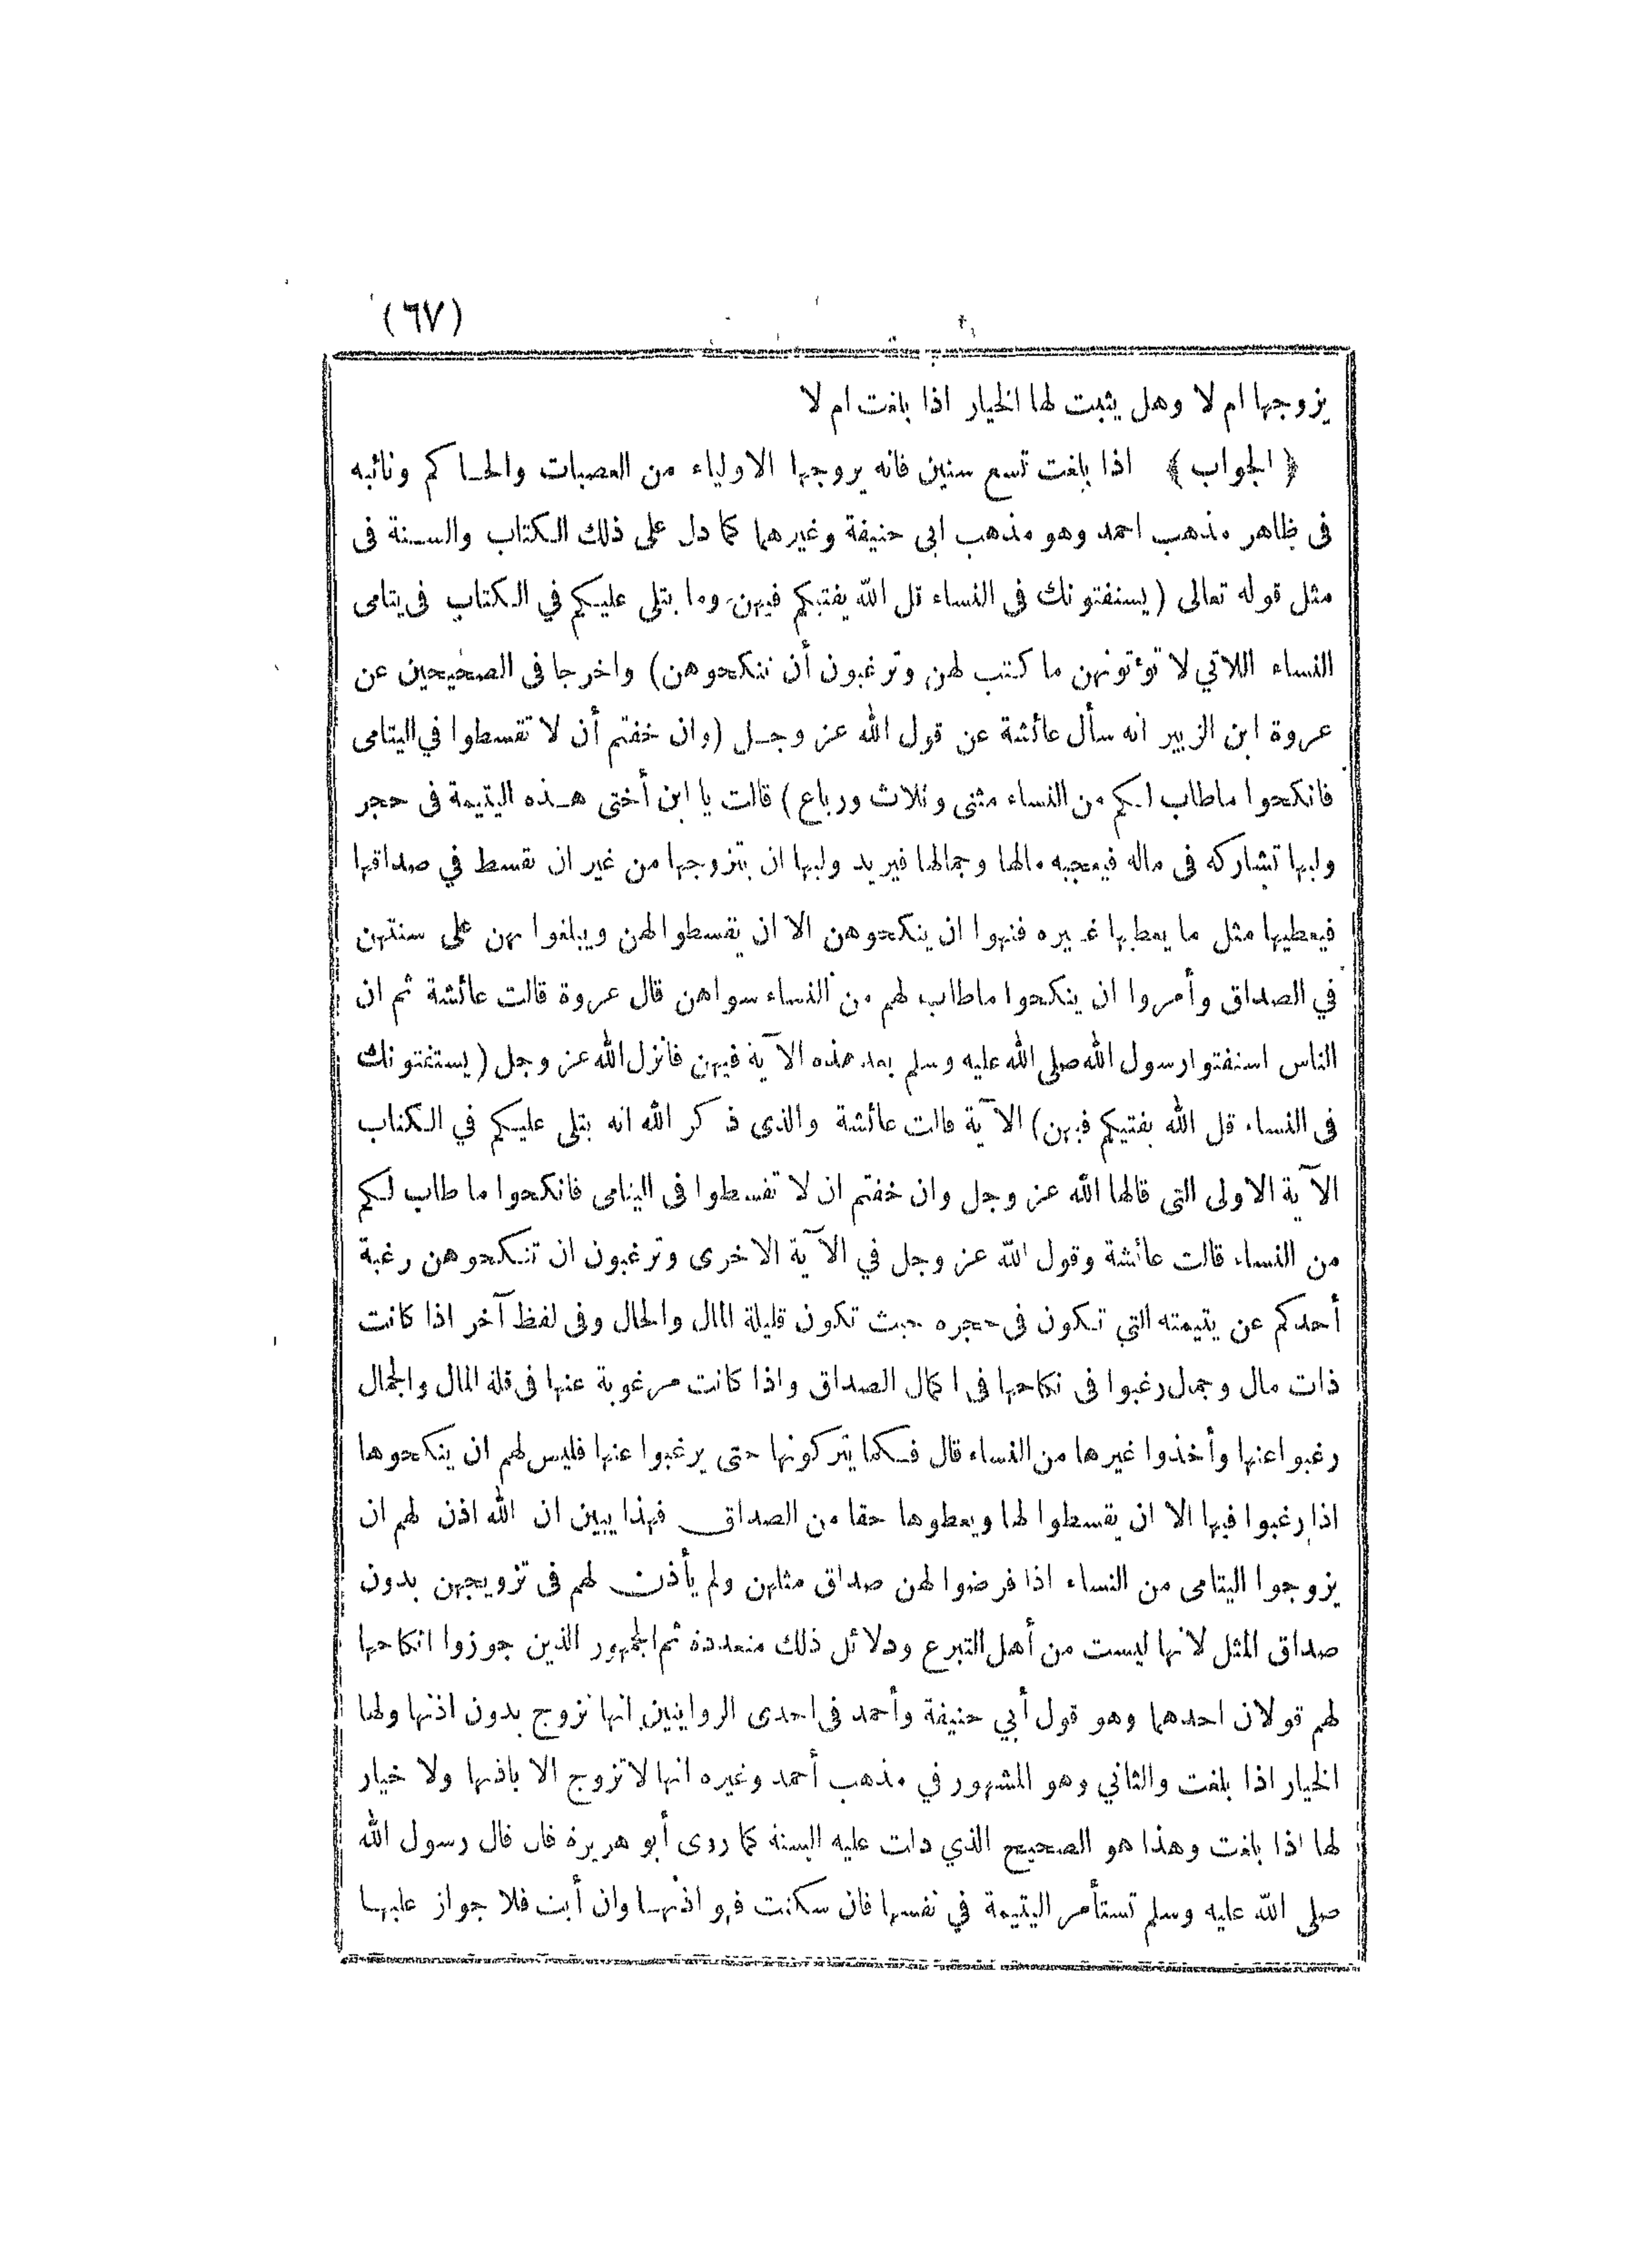 (٦٧)
يزوجها ام لا وهل يثبت لها الخيار اذا بلغت ام لا
﴿ الجواب ﴾ اذا بلغت تسع سنين فانه يزوجها الاولياء من العصبات والحاكم ونائبه
فى ظاهر مذهب احمد وهو مذهب ابى حنيفة وغيرهما كما دل على ذلك الكتاب والسنة فى
مثل قوله تعالى (يستفتونك فى النساء قل الله يفتيكم فيهن وما يتلى عليكم في الكتاب فى يتامى
النساء اللاتي لا تؤتونهن ما كتب لهن وترغبون أن تنكحوهن) واخرجا فى الصحيحين عن
عروة ابن الزبير انه سأل عائشة عن قول الله عز وجل (وان خفتم أن لا تقسطوا في اليتامى
فانكحوا ماطاب لكم من النساء مثنى وثلاث ورباع) قالت يا ابن أختى هذه اليتيمة فى حجر
وليها تشاركه فى ماله فيعجبه مالها وجمالها فيريد وليها ان يتزوجها من غير ان تقسط في صداقها
فيعطيها مثل ما يعطيها غيره فنهوا ان ينكحوهن الا ان يقسطوا لهن ويبلغوا بهن على سنتهن
في الصداق وأمروا ان ينكحوا ماطاب لهم من النساء سواهن قال عروة قالت عائشة ثم ان
الناس استفتوا رسول الله صلى الله عليه وسلم بعد هذه الآية فيهن فانزل الله عز وجل (يستفتونك
فى النساء قل الله يفتيكم فيهن) الآية قالت عائشة والذى ذكر الله انه يتلى عليكم في الكتاب
الآية الاولى التى قالها الله عز وجل وان خفتم ان لا تقسطوا فى اليتامى فانكحوا ما طاب لكم
من النساء قالت عائشة وقول الله عز وجل في الآية الاخرى وترغبون ان تنكحوهن رغبة
أحدكم عن يتيمته التي تكون فى حجره حيث تكون قليلة المال والحال وفى لفظ آخر اذا كانت
ذات مال وجمال رغبوا فى نكاحها فى اكمال الصداق واذا كانت مرغوبة عنها فى قلة المال والجمال
رغبوا عنها وأخذوا غيرها من النساء قال فكما يتركونها حتى يرغبوا عنها فليس لهم ان ينكحوها
اذا رغبوا فيها الا ان يقسطوا لها ويعطوها حقا من الصداق فهذا يبين ان الله اذن لهم ان
يزوجوا اليتامى من النساء اذا فرضوا لهن صداق مثلهن ولم يأذن لهم فى تزويجهن بدون
صداق المثل لانها ليست من أهل التبرع ودلائل ذلك متعددة ثم الجمهور الذين جوزوا انكاحها
لهم قولان احدهما وهو قول أبي حنيفة وأحمد فى احدى الروايتين انها تزوج بدون اذنها ولها
الخيار اذا بلغت والثاني وهو المشهور في مذهب أحمد وغيره انها لا تزوج الا باذنها ولا خيار
لها اذا بلغت وهذا هو الصحيح الذي دلت عليه السنة كما روى أبو هريرة قال قال رسول الله
صلى الله عليه وسلم تستأمر اليتيمة في نفسها فان سكتت فهو اذنها وان أبت فلا جواز عليها